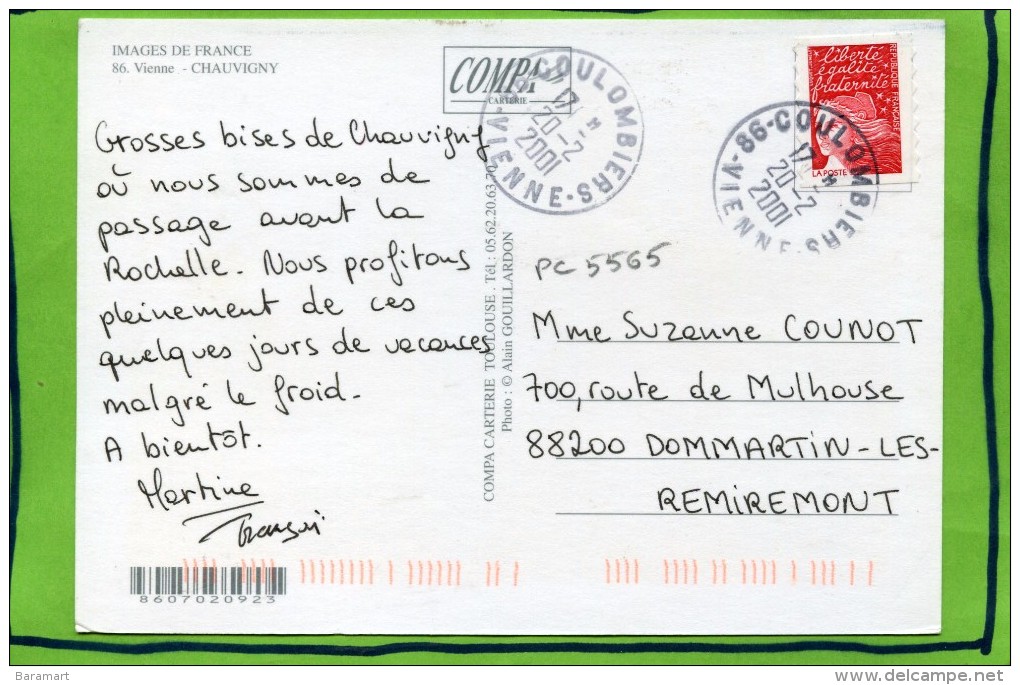 IMAGES DE FRANCE
86. Vienne - CHAUVIGNY
COMPA
CARTERIE
COULOMBIERS
VIENNE
17 H
20-2
2001
liberté
égalité
fraternité
RÉPUBLIQUE FRANÇAISE
LA POSTE
86-COULOMBIERS
VIENNE
17 H
20-2
2001
Grosses bises de Chauvigny
où nous sommes de
passage avant La
Rochelle. Nous profitons
pleinement de ces
quelques jours de vacances
malgré le froid.
A bientôt.
Martine
COMPA CARTERIE TOULOUSE . Tél : 05.62.20.63.20
Photo : © Alain GOUILLARDON
PC 5565
Mme Suzanne COUNOT
700, route de Mulhouse
88200 DOMMARTIN-LES-
REMIREMONT
8607020923
Baramart
www.delcampe.net